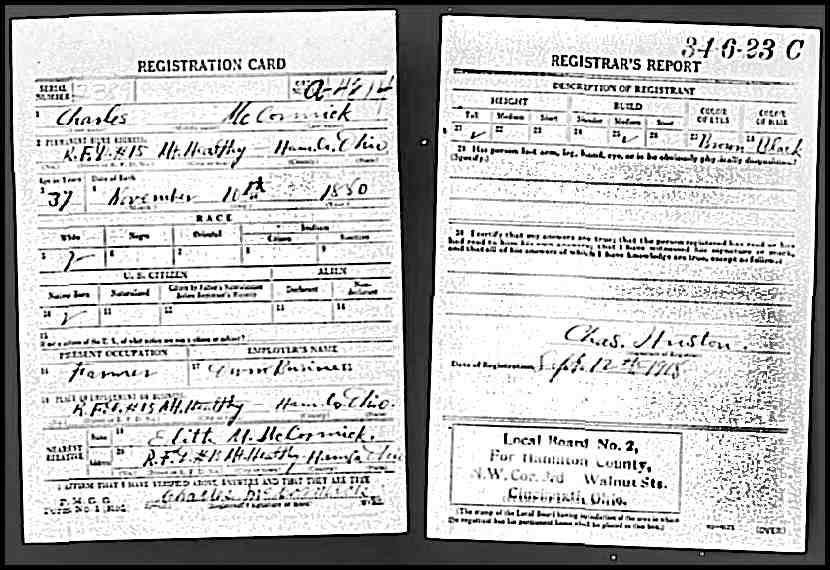 REGISTRATION CARD
SERIAL NUMBER
1 Charles McCormick
2 PERMANENT HOME ADDRESS:
R.F.D. #15 Mt. Healthy - Ham. Co. Ohio
Age in Years Date of Birth
3 37 4 November 10th 1880
RACE
White Negro Oriental Indian
Citizen
5 6 7 8 9
U. S. CITIZEN ALIEN
Native Born Naturalized Citizen by Father's Naturalization Before Registrant's Majority Declarant Non-declarant
10 11 12 13 14
15
If not a citizen of the U. S., of what nation are you a citizen or subject?
PRESENT OCCUPATION EMPLOYER'S NAME
16 Farmer 17 Own Business
18 PLACE OF EMPLOYMENT OR BUSINESS:
R.F.D. #15 Mt. Healthy - Ham. Co. Ohio.
NEAREST RELATIVE Name 19 Edith M. McCormick.
Address 20 R.F.D. #15 Mt. Healthy Ham. Co. Ohio
I AFFIRM THAT I HAVE VERIFIED ABOVE ANSWERS AND THAT THEY ARE TRUE
P. M. G. O.
Form No. 1 (Red) Charles McCormick
(Registrant's signature or mark) OVER
34-6-23 C
REGISTRAR'S REPORT
DESCRIPTION OF REGISTRANT
HEIGHT BUILD COLOR OF EYES COLOR OF HAIR
Tall Medium Short Slender Medium Stout
21 22 23 24 25 26 27 Brown 28 Black
29 Has person lost arm, leg, hand, eye, or is he obviously physically disqualified?
(Specify.)
30 I certify that my answers are true; that the person registered has read or has
had read to him his own answers; that I have witnessed his signature or mark,
and that all of his answers of which I have knowledge are true, except as follows:
Chas. Huston.
(Signature of Registrar)
Date of Registration Sept. 12th 1918
Local Board No. 2,
For Hamilton County,
N.W. Cor. 3rd Walnut Sts.
Cincinnati Ohio.
(The stamp of the Local Board having jurisdiction of the area in which
the registrant has his permanent home shall be placed in this box.)
(OVER)